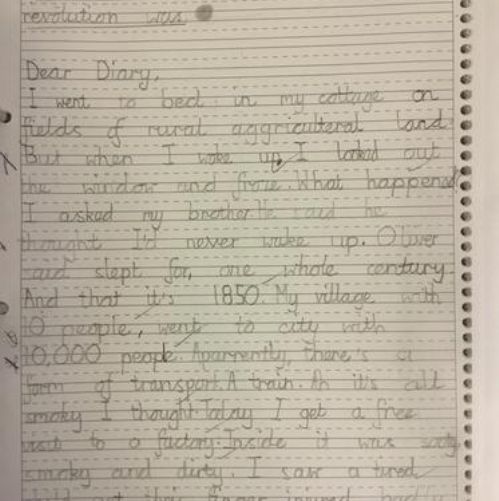 revolution was
Dear Diary,
I went to bed in my cottage on
fields of rural aggriculteral land.
But when I woke up, I looked out
the window and froze. What happened
I asked my brother. He said he
thought I'd never wake up. Oliver
said slept for, one whole century.
And that it's 1850. My village with
10 people, went to city with
10,000 people. Aparrently, there's a
form of transport. A train. Ah it's all
smoky I thought. Today I get a free
visit to a factory. Inside it was
smoky and dirty. I saw a tired